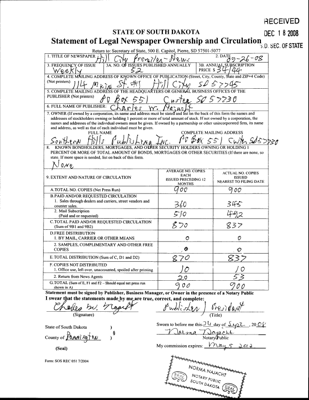 RECEIVED
DEC 18 2008
S.D. SEC. OF STATE
STATE OF SOUTH DAKOTA
Statement of Legal Newspaper Ownership and Circulation
Return to Secretary of State, 500 E. Capitol, Pierre, SD 57501-5077
1. TITLE OF NEWSPAPER Hill City Prevailer-News
2. DATE 09-26-08
3. FREQUENCY OF ISSUE Weekly
3A. NO. OF ISSUES PUBLISHED ANNUALLY 52
3B. ANNUAL SUBSCRIPTION PRICE $
4. COMPLETE MAILING ADDRESS OF KNOWN OFFICE OF PUBLICATION (Street, City, County, State and ZIP+4 Code)
(Not printers) 114 Main St #1 Hill City SD 57745
5. COMPLETE MAILING ADDRESS OF THE HEADQUARTERS OR GENERAL BUSINESS OFFICES OF THE
PUBLISHER (Not printers) PO Box 551 Custer SD 57730
6. FULL NAME OF PUBLISHER Charles W. Najacht
7. OWNER (If owned by a corporation, its name and address must be stated and also the names and
addresses of stockholders owning or holding 1 percent or more of total amount of stock. If not owned by a corporation, the
names and addresses of the individual owners must be given. If owned by a partnership or other unincorporated firm, its name
and address, as well as that of each individual must be given.
FULL NAME
COMPLETE MAILING ADDRESS
Southern Hills Publishing Inc. PO Box 551 Custer, SD 57730
8. KNOWN BONDHOLDERS, MORTGAGEES, AND OTHER SECURITY HOLDERS OWNING OR HOLDING 1
PERCENT OR MORE OF TOTAL AMOUNT OF BONDS, MORTGAGES OR OTHER SECURITIES (If there are none, so
state. If more space is needed, list on back of this form.
None
9. EXTENT AND NATURE OF CIRCULATION
AVERAGE NO. COPIES EACH ISSUED PRECEDING 12 MONTHS
ACTUAL NO. COPIES ISSUED NEAREST TO FILING DATE
A. TOTAL NO. COPIES (Net Press Run) 900 900
B. PAID AND/OR REQUESTED CIRCULATION
1. Sales through dealers and carriers, street vendors and counter sales. 360 345
2. Mail Subscription (Paid and/or requested) 510 492
C. TOTAL PAID AND/OR REQUESTED CIRCULATION (Sum of 9B1 and 9B2) 870 837
D. FREE DISTRIBUTION
1. BY MAIL, CARRIER OR OTHER MEANS 0 0
2. SAMPLES, COMPLIMENTARY AND OTHER FREE COPIES 0 0
E. TOTAL DISTRIBUTION (Sum of C, D1 and D2) 870 837
F. COPIES NOT DISTRIBUTED
1. Office use, left over, unaccounted, spoiled after printing 10 10
2. Return from News Agents 20 53
G. TOTAL (Sum of E, F1 and F2 - Should equal net press run shown in A) 900 900
Statement must be signed by Publisher, Business Manager, or Owner in the presence of a Notary Public
I swear that the statements made by me are true, correct, and complete:
Charles W. Najacht Publisher / President
(Signature) (Title)
State of South Dakota )
County of Pennington )
Sworn to before me this 26 day of Sept. 2008
Norma Najacht
Notary Public
(Seal)
My commission expires: May 5, 2012
Form: SOS REC 051 7/2004
NORMA NAJACHT
NOTARY PUBLIC
SOUTH DAKOTA